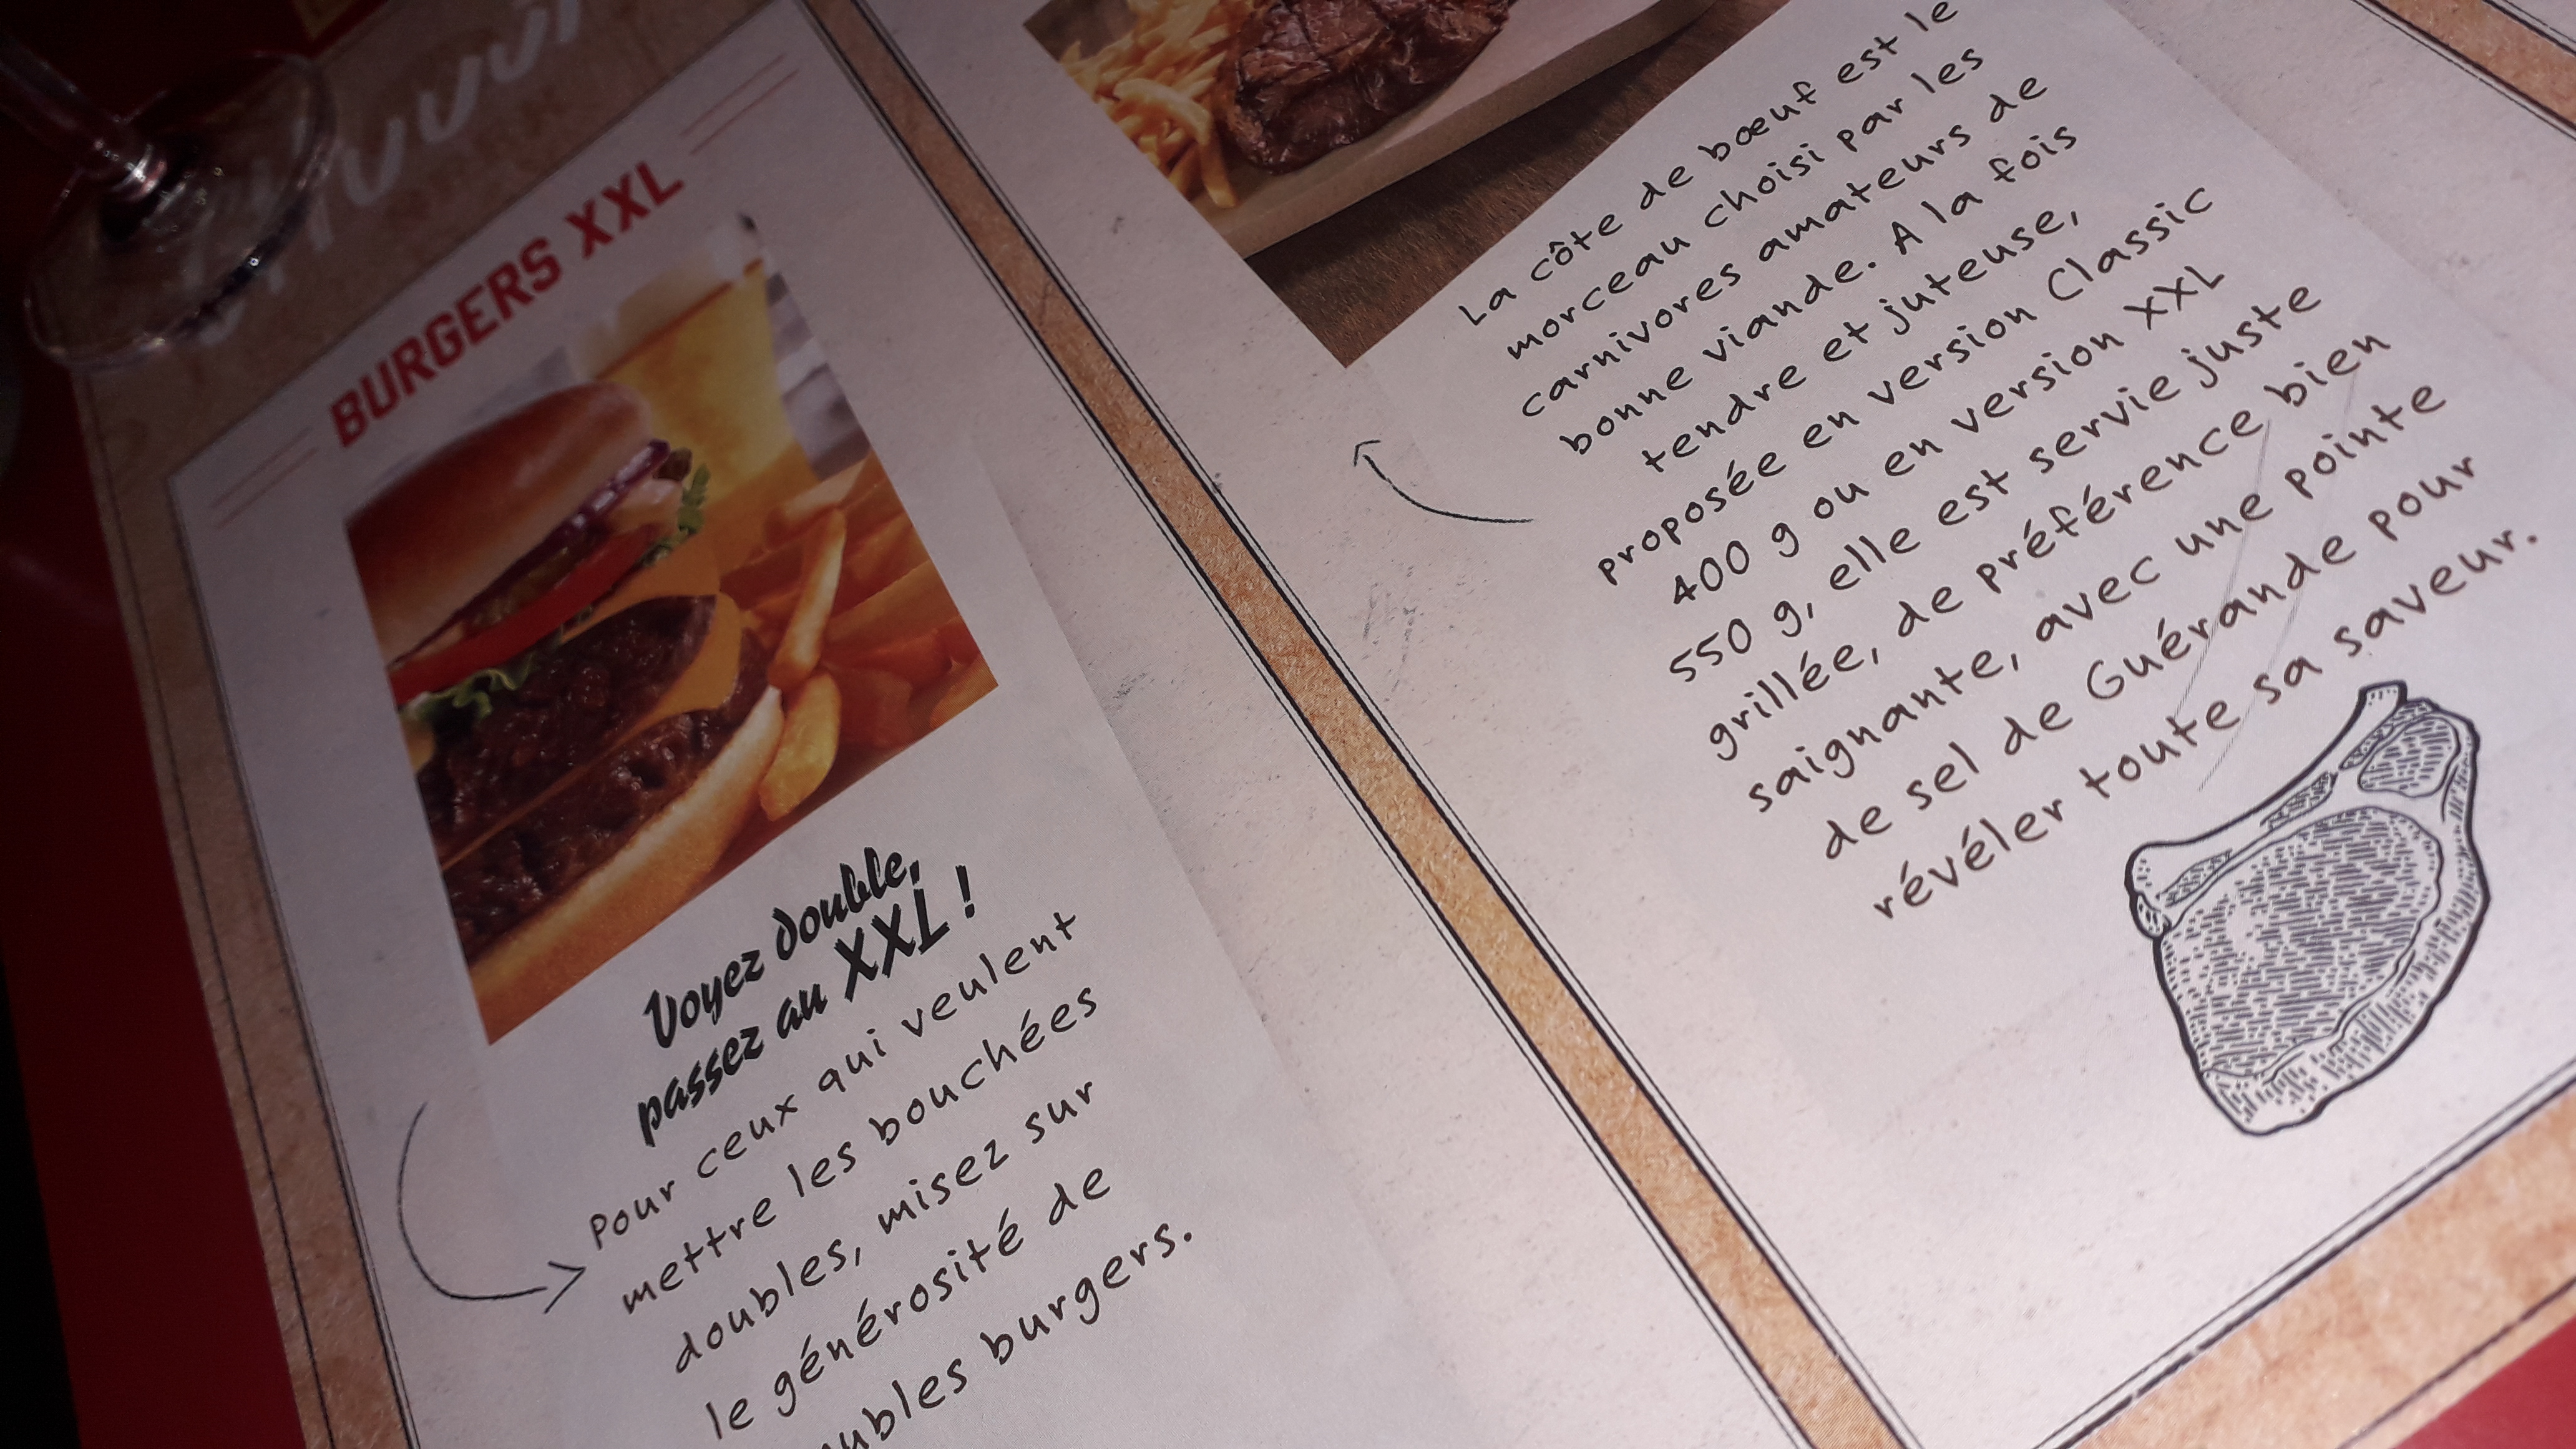 BURGERS XXL
Voyez double,
passez au XXL !
Pour ceux qui veulent
mettre les bouchées
doubles, misez sur
le générosité de
burgers.
La côte de bœuf est le
morceau choisi par les
carnivores amateurs de
bonne viande. A la fois
tendre et juteuse,
proposée en version Classic
400 g ou en version XXL
550 g, elle est servie juste
grillée, de préférence bien
saignante, avec une pointe
de sel de Guérande pour
révéler toute sa saveur.